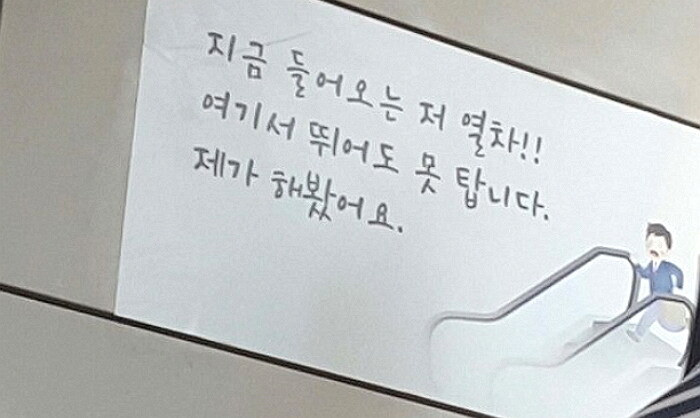 지금 들어오는 저 열차!!
여기서 뛰어도 못 탑니다.
제가 해봤어요.